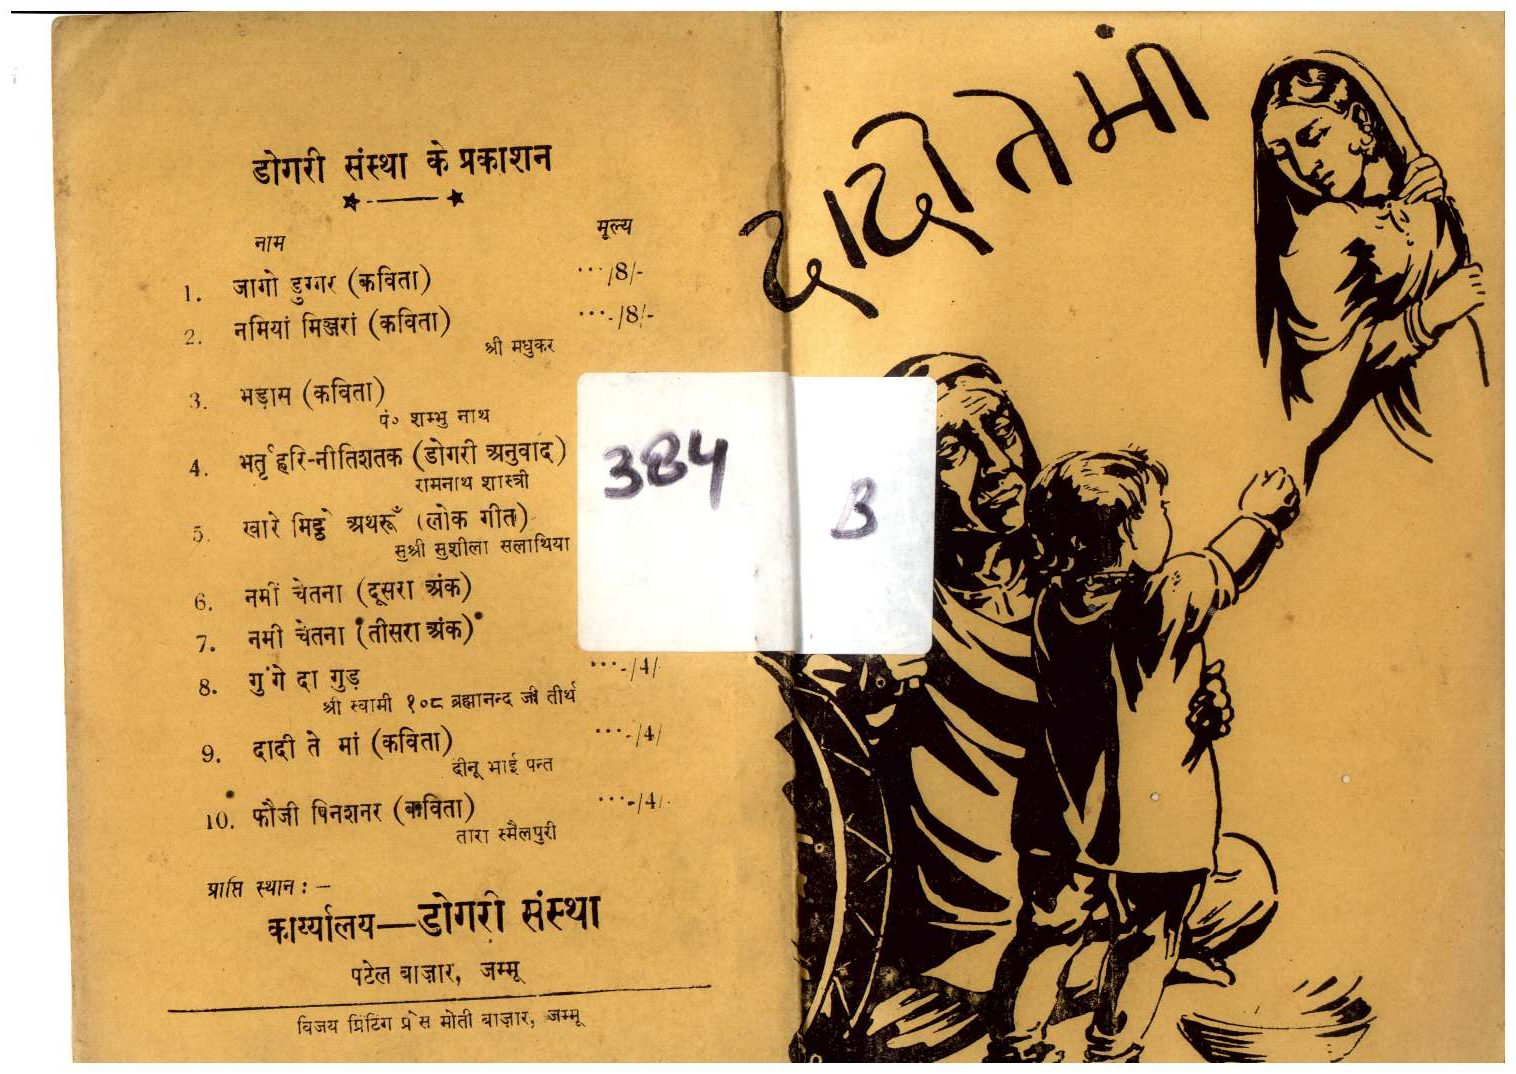 डोगरी संस्था के प्रकाशन
नाम मूल्य
1. जागो डुग्गर (कविता) ···/8/-
2. नमियां मिञ्जरां (कविता) ···-/8/-
श्री मधुकर
3. भड़ाम (कविता)
पं० शम्भु नाथ
4. भर्तृहरि-नीतिशतक (डोगरी अनुवाद)
रामनाथ शास्त्री
5. खारे मिट्ठे अथरूँ (लोक गीत)
सुश्री सुशीला सलाथिया
6. नमीं चेतना (दूसरा अंक)
7. नमी चेतना (तीसरा अंक)
8. गुंगे दा गुड़ ···-/4/-
श्री स्वामी १०८ ब्रह्मानन्द जी तीर्थ
9. दादी ते मां (कविता) ···-/4/
दीनू भाई पन्त
10. फौजी पिनशनर (कविता) ···-/4/-
तारा स्मैलपुरी
प्राप्ति स्थान : —
कार्य्यालय—डोगरी संस्था
पटेल बाज़ार, जम्मू
विजय प्रिंटिंग प्रेस मोती बाज़ार, जम्मू
384
B
दादी ते मां